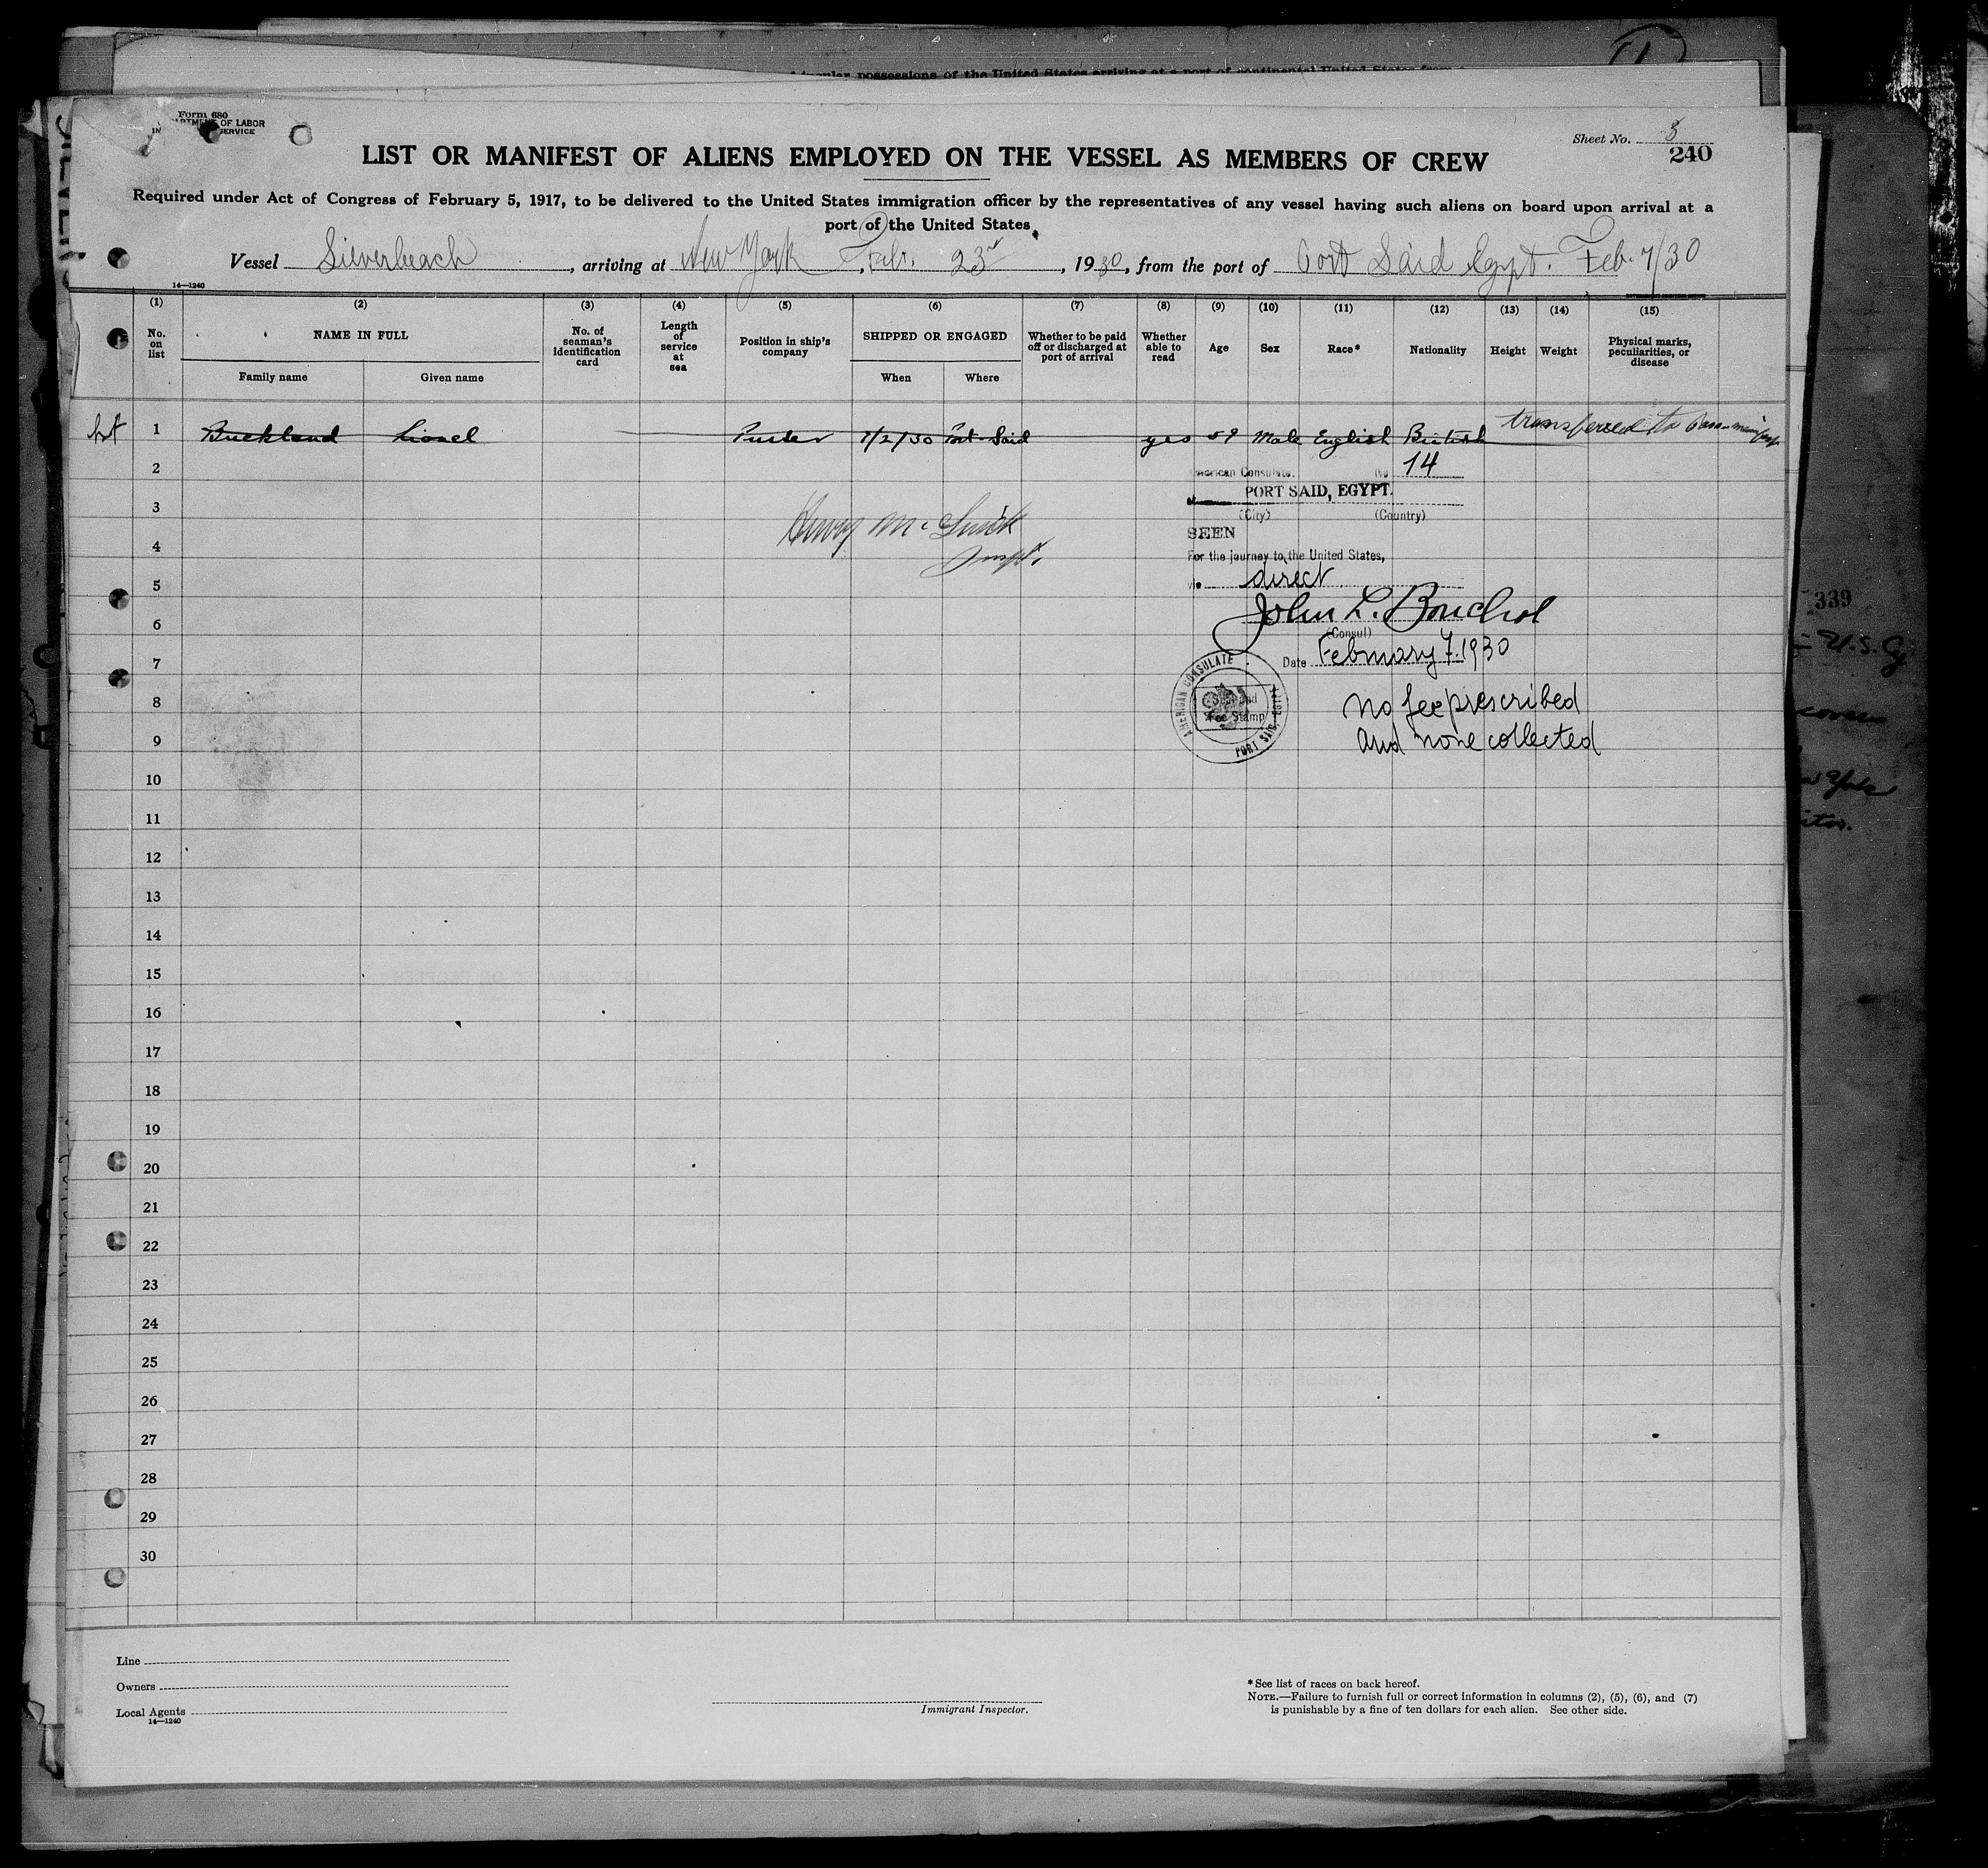 insular possessions of the United States arriving at a port of continental United States from a
Form 680
DEPARTMENT OF LABOR
SERVICE
Sheet No. 3
240
LIST OR MANIFEST OF ALIENS EMPLOYED ON THE VESSEL AS MEMBERS OF CREW
Required under Act of Congress of February 5, 1917, to be delivered to the United States immigration officer by the representatives of any vessel having such aliens on board upon arrival at a
port of the United States
Vessel Silverbeach, arriving at New York, Feb. 23rd, 1930, from the port of Port Said Egypt. Feb. 7/30
14—1240
(1) (2) (3) (4) (5) (6) (7) (8) (9) (10) (11) (12) (13) (14) (15)
No. on list
NAME IN FULL
Family name
Given name
No. of seaman's identification card
Length of service at sea
Position in ship's company
SHIPPED OR ENGAGED
When
Where
Whether to be paid off or discharged at port of arrival
Whether able to read
Age
Sex
Race*
Nationality
Height
Weight
Physical marks, peculiarities, or disease
1 Buckland Lionel Purser 7/2/30 Port Said yes 59 Male English British transferred to Pass. manifest
2
American Consulate. No. 14
PORT SAID, EGYPT.
3
(City) (Country)
Henry
SEEN
4
For the journey to the United States,
Inspt.
5
via direct
John L. Bouchal
6
(Consul)
7
Date February 7. 1930
AMERICAN CONSULATE
PORT SAID, EGYPT
Fee Stamp
8
No fee prescribed
9
and none collected
10
11
12
13
14
15
16
17
18
19
20
21
22
23
24
25
26
27
28
29
30
Line
Owners
Local Agents
14—1240
Immigrant Inspector.
*See list of races on back hereof.
NOTE.—Failure to furnish full or correct information in columns (2), (5), (6), and (7)
is punishable by a fine of ten dollars for each alien. See other side.
339
U.S. Cy